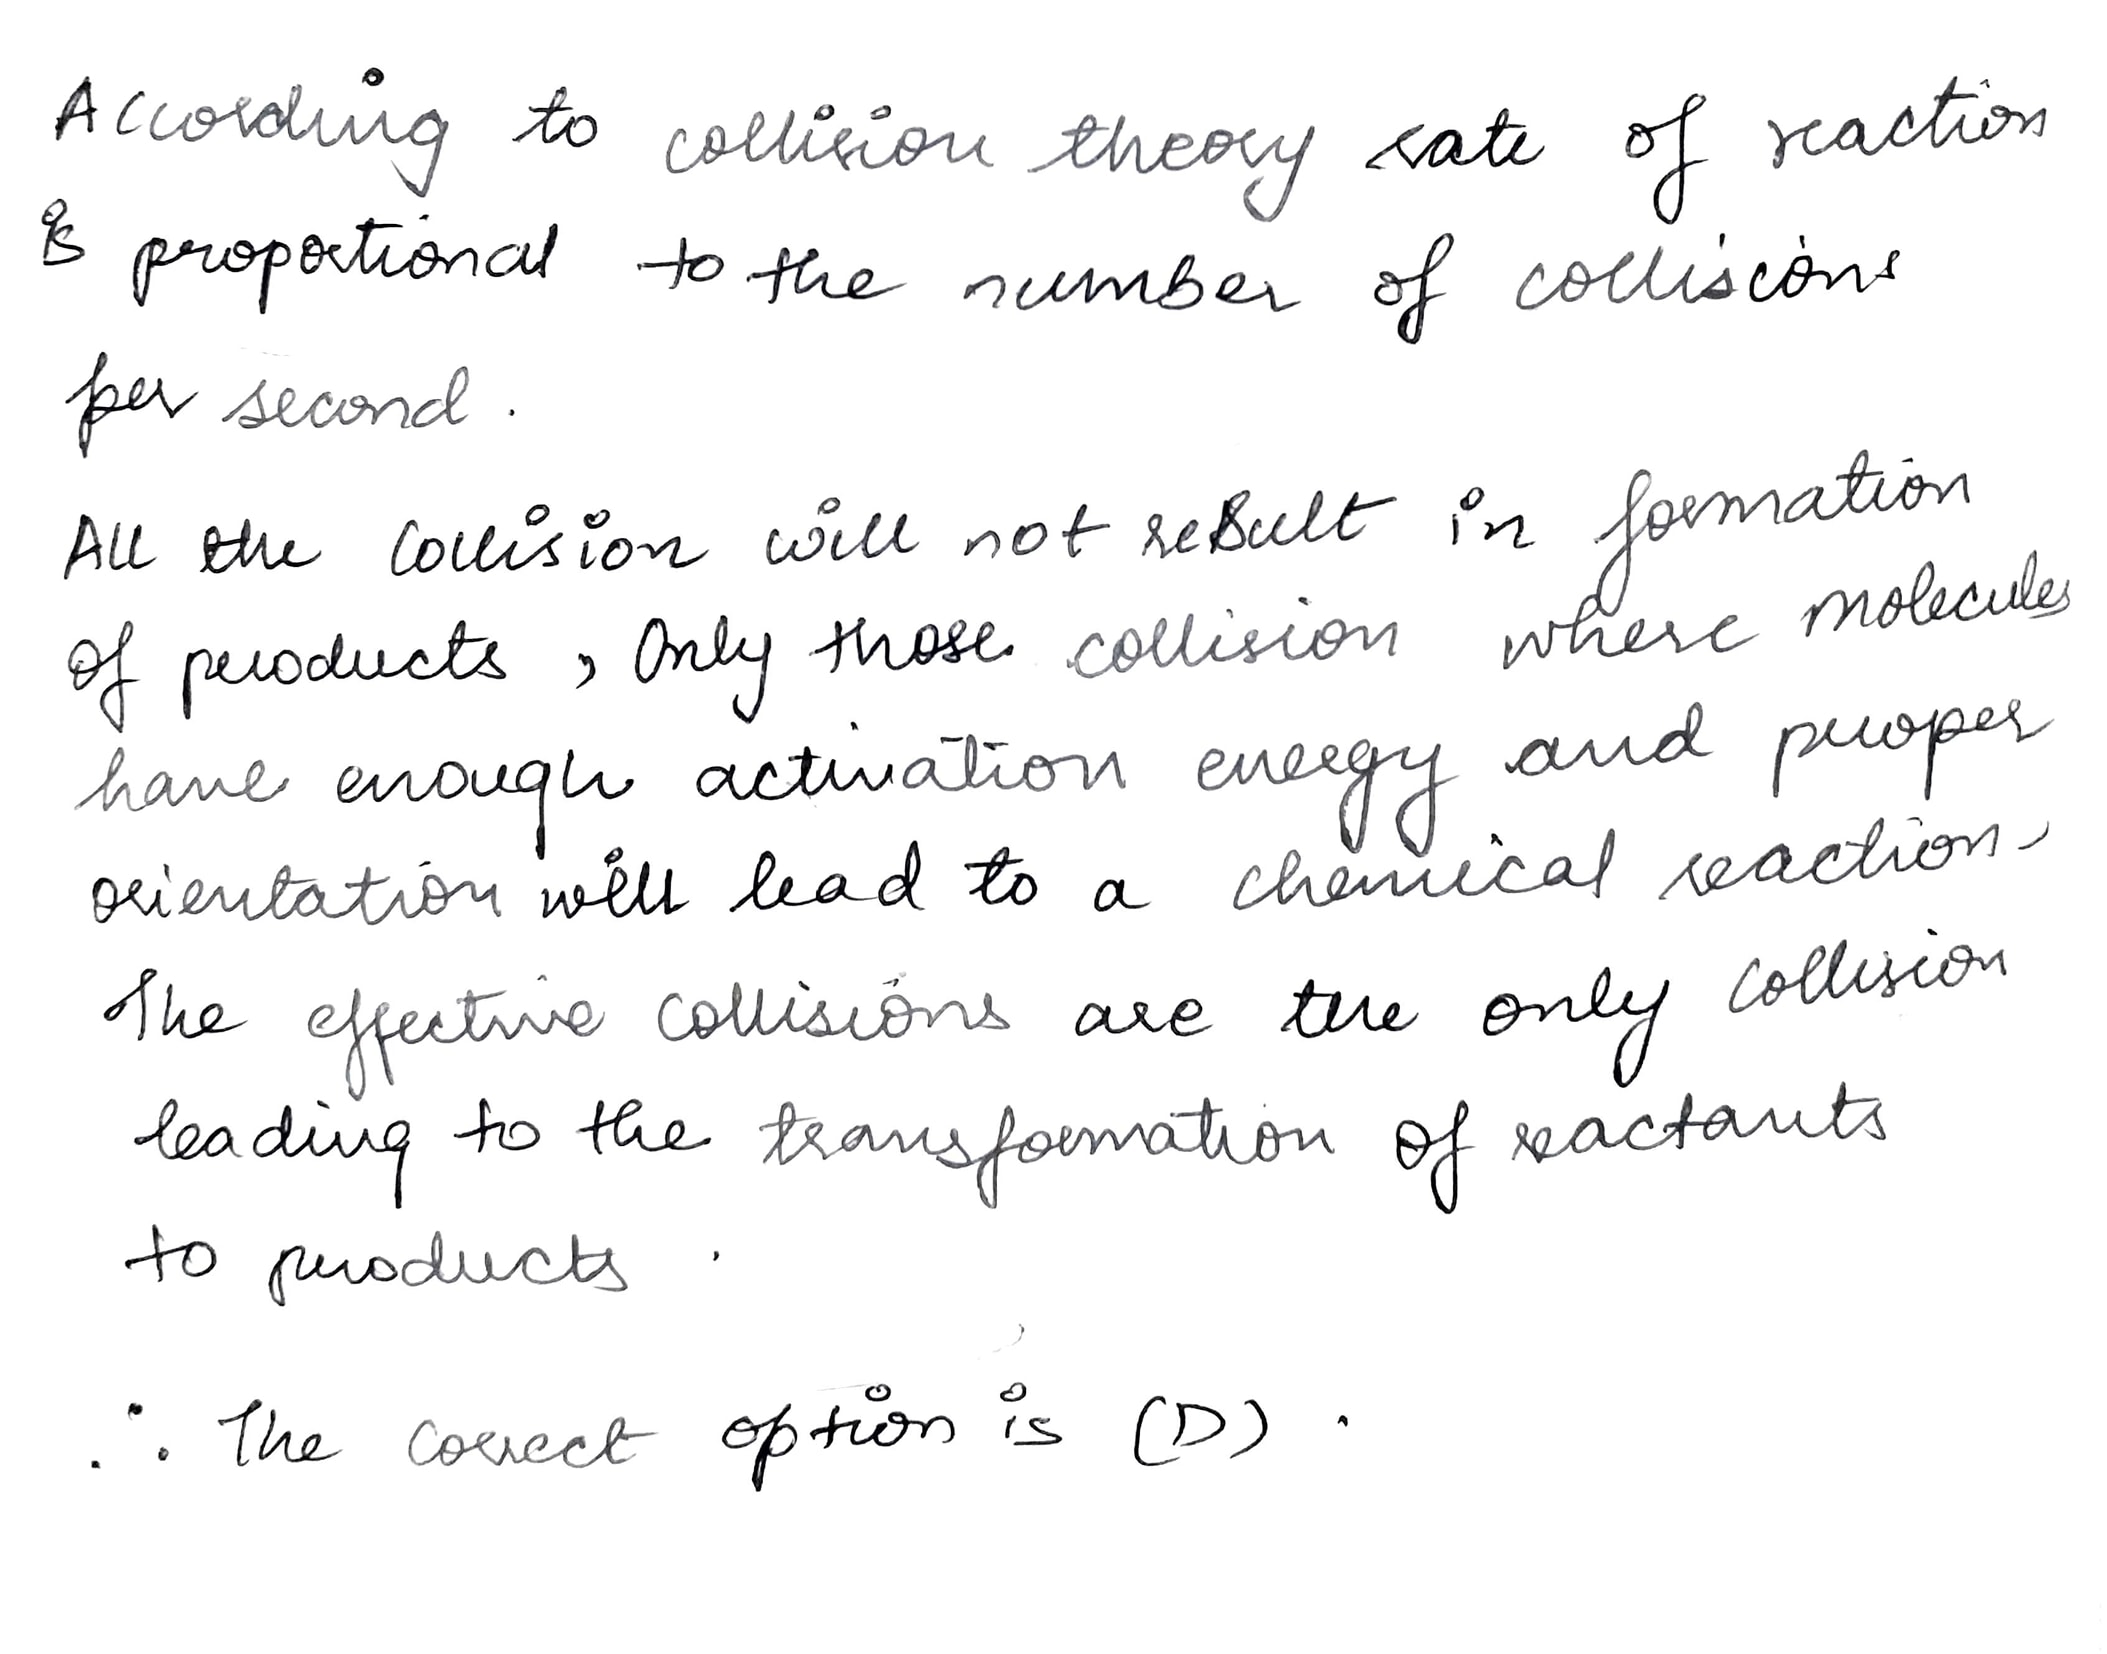 According to collision theory rate of reaction
is proportional to the number of collisions
per second.
All the collision will not result in formation
of products, Only those collision where molecules
have enough activation energy and proper
orientation will lead to a chemical reaction.
The effective collisions are the only collision
leading to the transformation of reactants
to products.
∴ The correct option is (D).